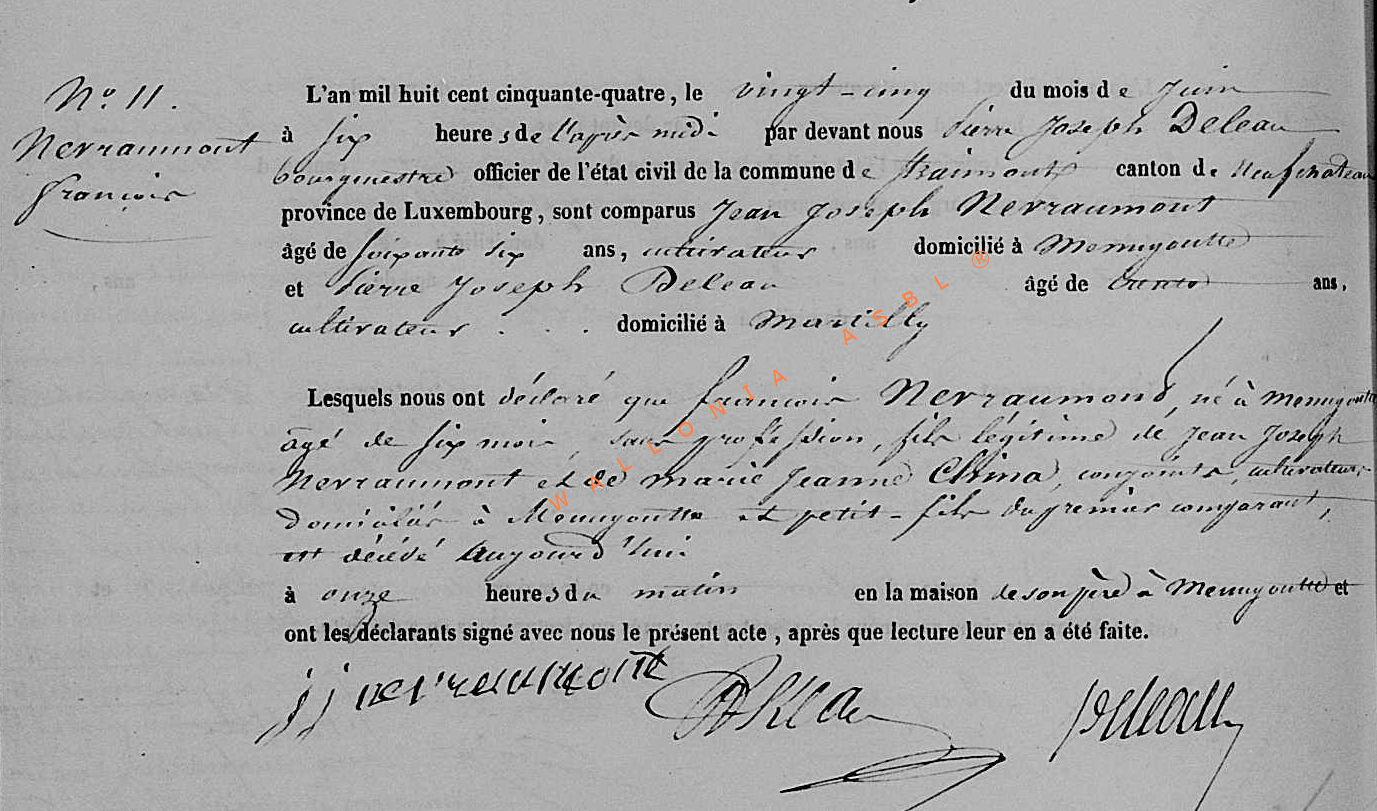 N° 11.
Nerraumont
françois
L'an mil huit cent cinquante-quatre, le vingt-cinq du mois de Juin
à six heures de l'après midi par devant nous Pierre Joseph Deleau
bourgmestre officier de l'état civil de la commune de Straimont canton de Neufchâteau
province de Luxembourg, sont comparus Jean Joseph Nerraumont
âgé de soixante six ans, cultivateur domicilié à Menugoutte
et Pierre Joseph Deleau âgé de trente ans,
cultivateur . . . domicilié à Martilly
Lesquels nous ont déclaré que francois Nerraumont, né à Menugoutte
âgé de six mois, sans profession, fils légitime de Jean Joseph
Nerraumont et de marie Jeanne China, conjoints, cultivateurs,
domiciliés à Menugoutte et petit-fils du premier comparant,
est décédé aujourd'hui
à onze heures du matin en la maison de son père à Menugoutte et
ont les déclarants signé avec nous le présent acte, après que lecture leur en a été faite.
jj nerraumont
Deleau
WALLONIA ASBL ®